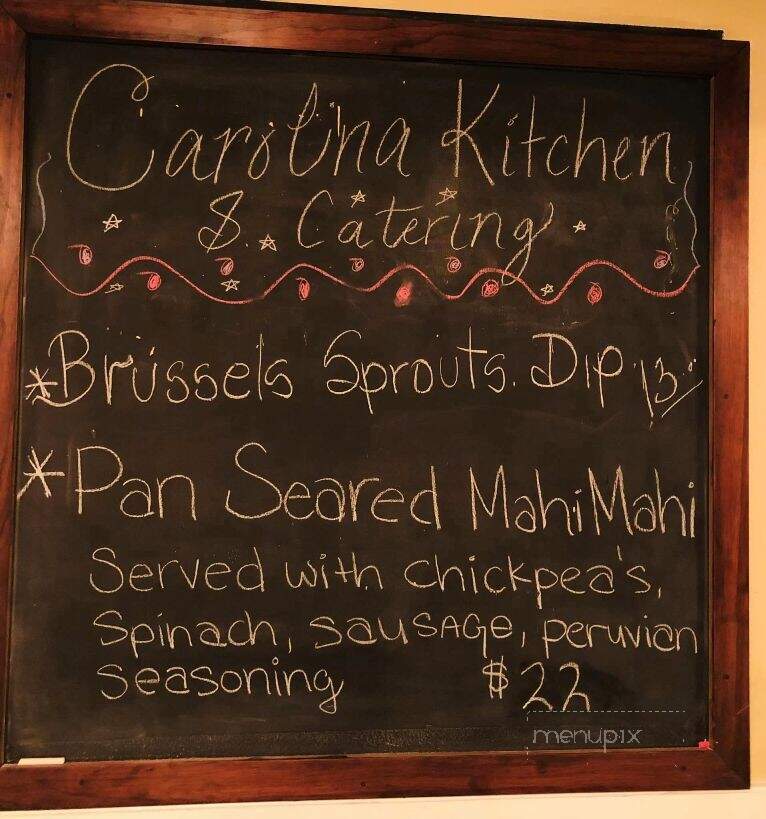 Carolina Kitchen
& Catering
*Brussels Sprouts Dip 13.00
*Pan Seared Mahi Mahi
Served with chickpea's,
Spinach, sausage, peruvian
seasoning $22
menupix